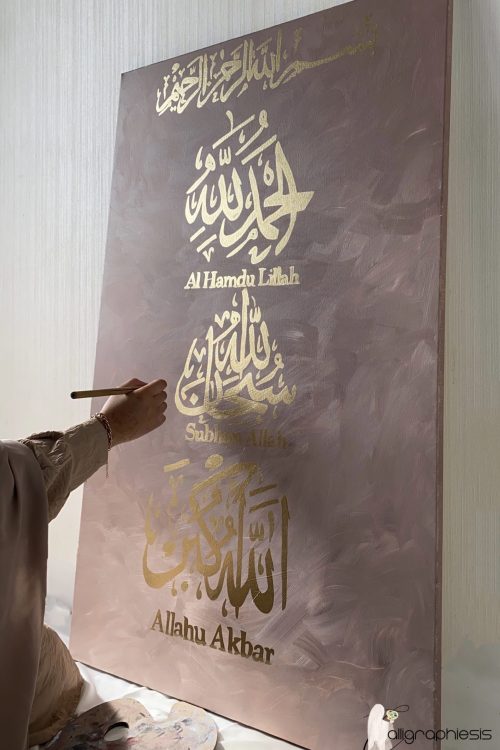 بسم الله الرحمن الرحيم
الحمد لله
Al Hamdu Lillah
سبحان الله
Subhan Allah
الله أكبر
Allahu Akbar
alligraphiesis